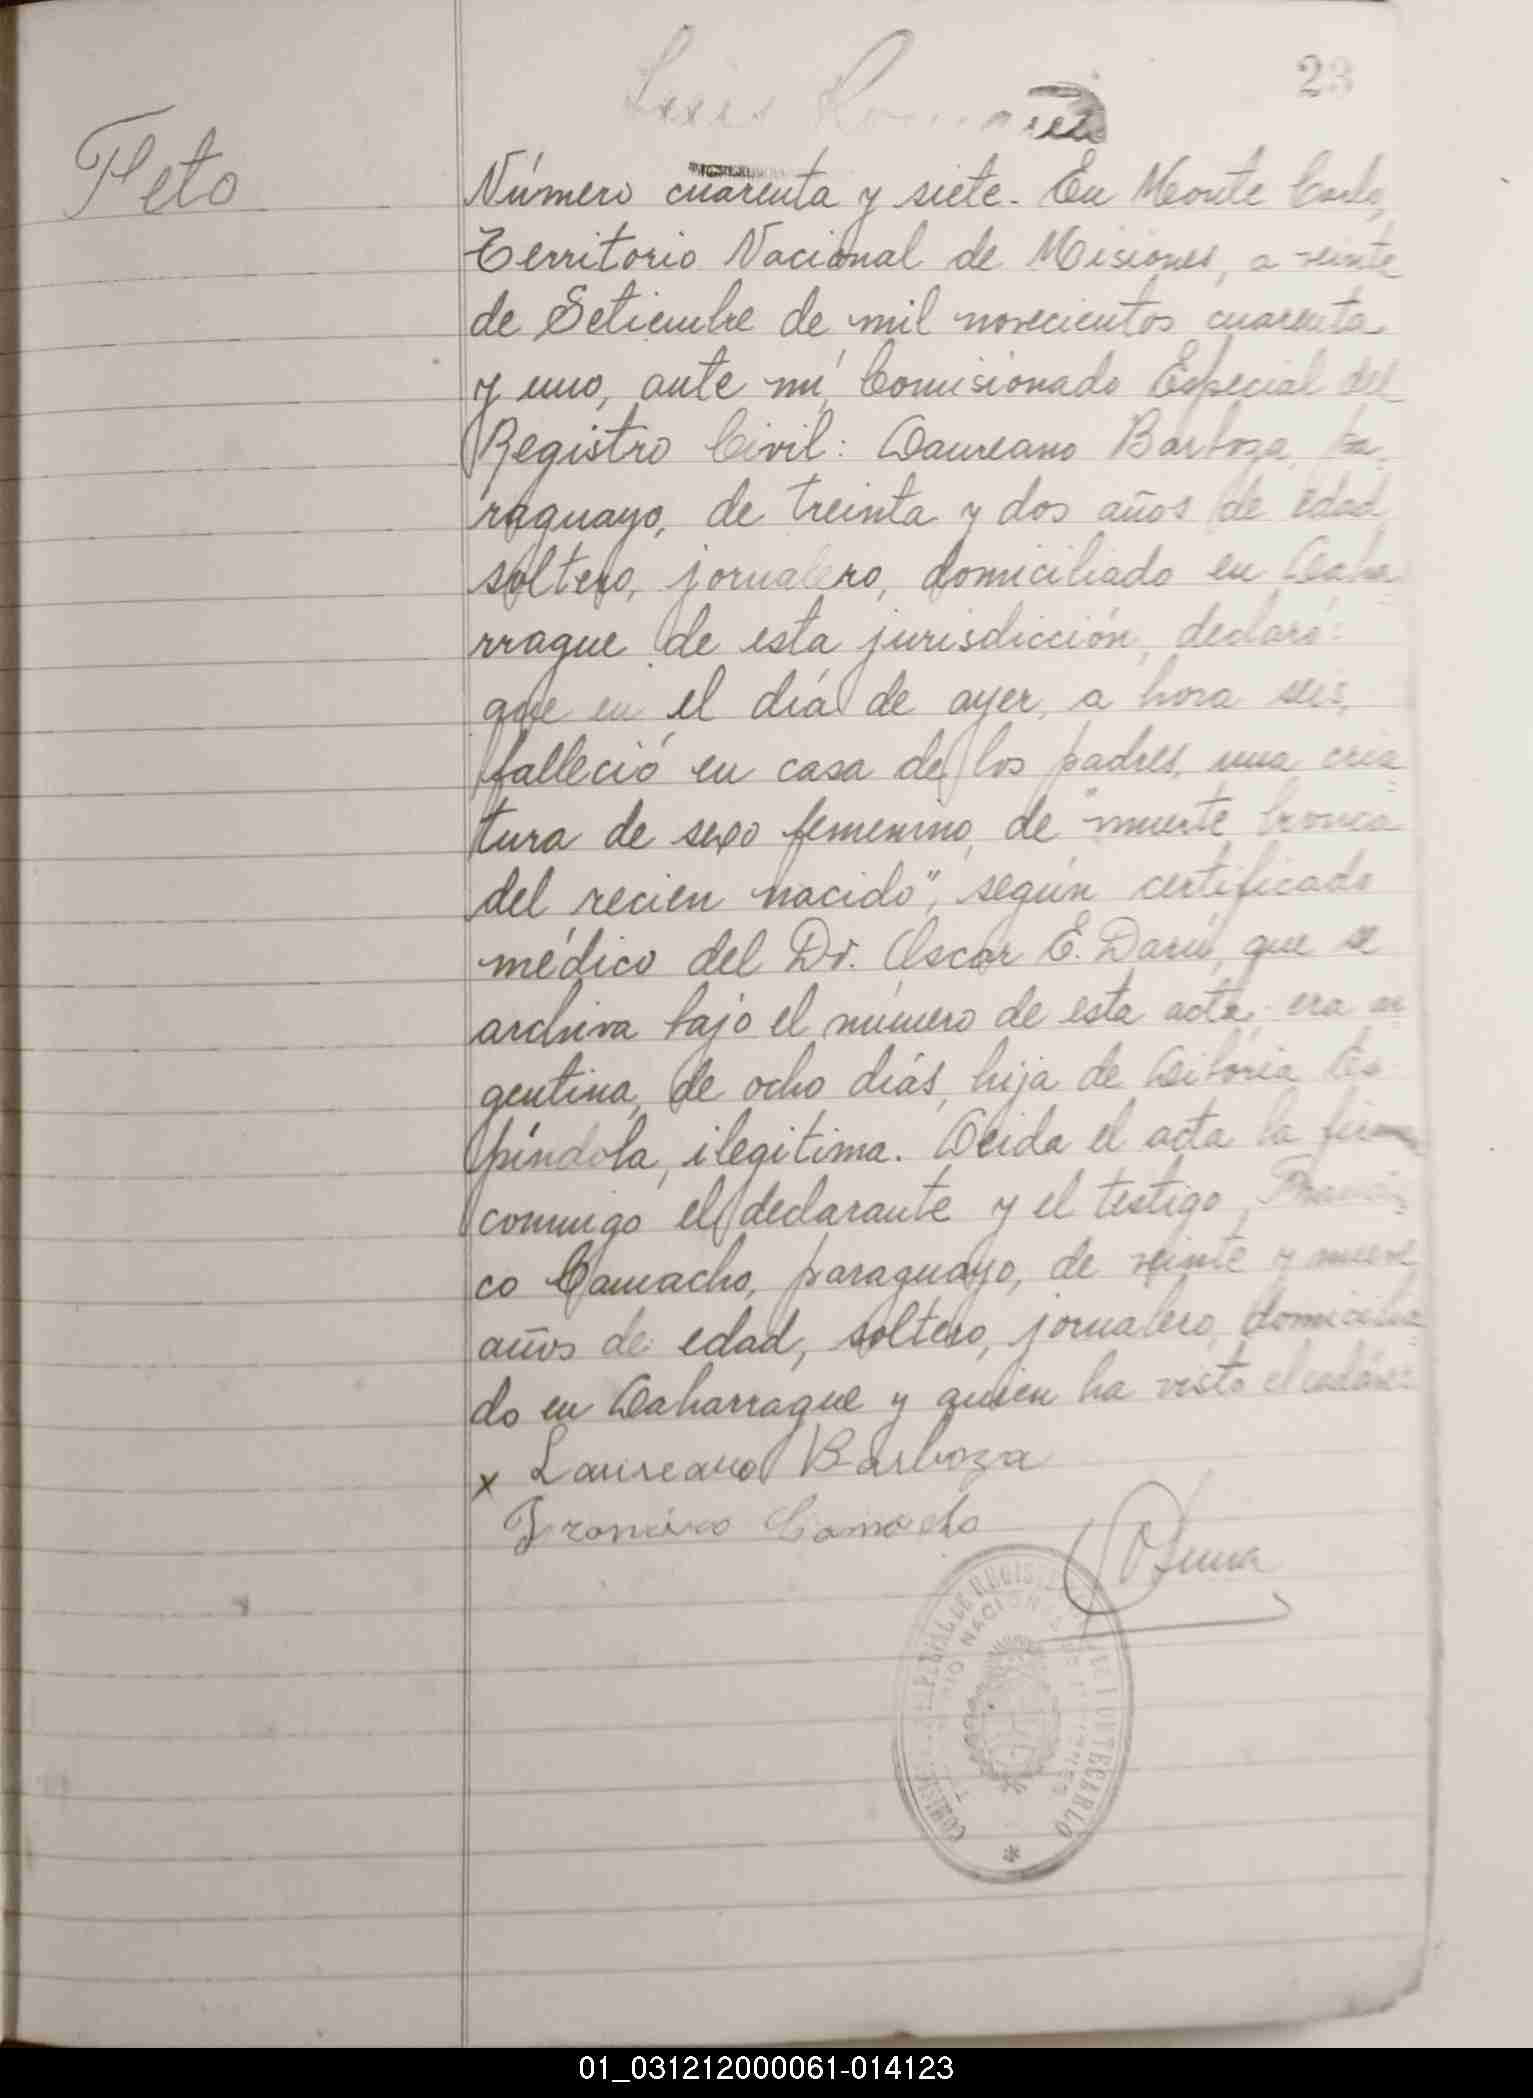 23
Luis
Feto
Número cuarenta y siete. En Monte Carlo,
Territorio Nacional de Misiones, a veinte
de Setiembre de mil novecientos cuarenta
y uno, ante mí, Comisionado Especial del
Registro Civil: Laureano Barboza, pa-
raguayo, de treinta y dos años de edad
soltero, jornalero, domiciliado en Laha-
rrague de esta jurisdicción, declaró:
que en el día de ayer, a hora seis,
falleció en casa de los padres, una cria-
tura de sexo femenino, de "muerte bronca
del recien nacido", según certificado
médico del Dr. Oscar E. Darú, que se
archiva bajo el número de esta acta; era ar
gentina, de ocho días, hija de Vitória Es-
píndola, ilegitima. Leida el acta la firma
conmigo el declarante y el testigo, Francis-
co Camacho, paraguayo, de veinte y nueve
años de edad, soltero, jornalero, domicilia-
do en Laharrague y quien ha visto el cadáver.
x Laureano Barboza
Francisco Camacho
MONTECARLO
01_031212000061-014123